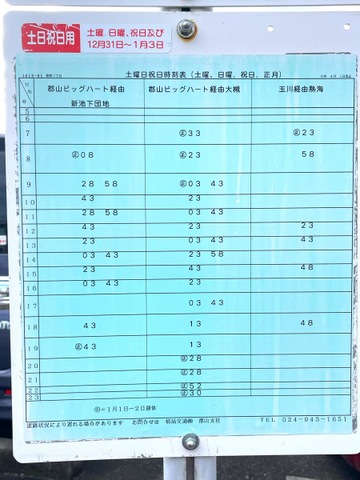 土日祝日用
土曜、日曜、祝日及び
12月31日～1月3日
土曜日祝日時刻表（土曜、日曜、祝日、正月）
郡山ビッグハート経由 郡山ビッグハート経由大槻 玉川経由熱海
新池下団地
5
6
7 ㊣33 ㊣23
8 ㊣08 ㊣23 58
9 28 58 ㊣03 43
10 43 23
11 28 58 03 43
12 43 23 23
13 23 03 43 43
14 03 43 23 58
15 23 43 48
16 03 43 23
17 03 43
18 43 13 48
19 ㊣43 13
20 ㊣28
21 ㊣28
22 ㊣52
23 ㊣30
㊣＝1月1日～2日運休
道路状況により遅れる場合があります お問合せは 福島交通㈱ 郡山支社 TEL 024-943-1651